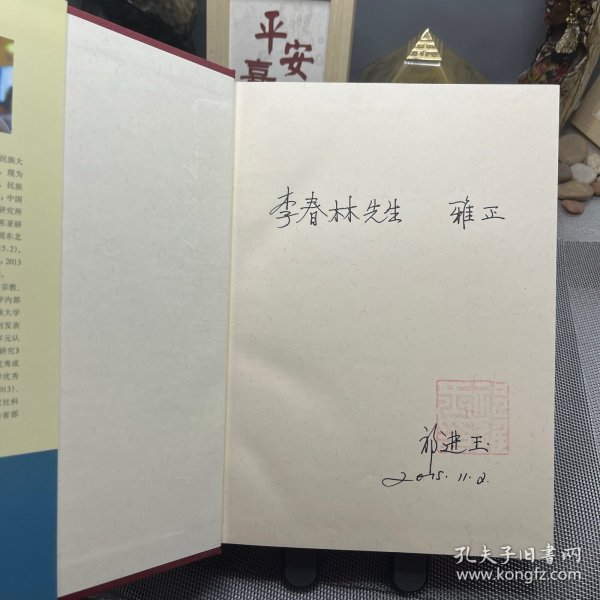 平安
喜
民族大
现为
民族
中国
研究所
东亚研
国东北
15.2)，
2013
宗教、
学内部
族大学
刊发表
多元认
研究》
优秀成
优秀
013)、
社科
省部
李春林先生 雅正
祁进玉
2015.11.2.
孔夫子旧书网
www.kongfz.com